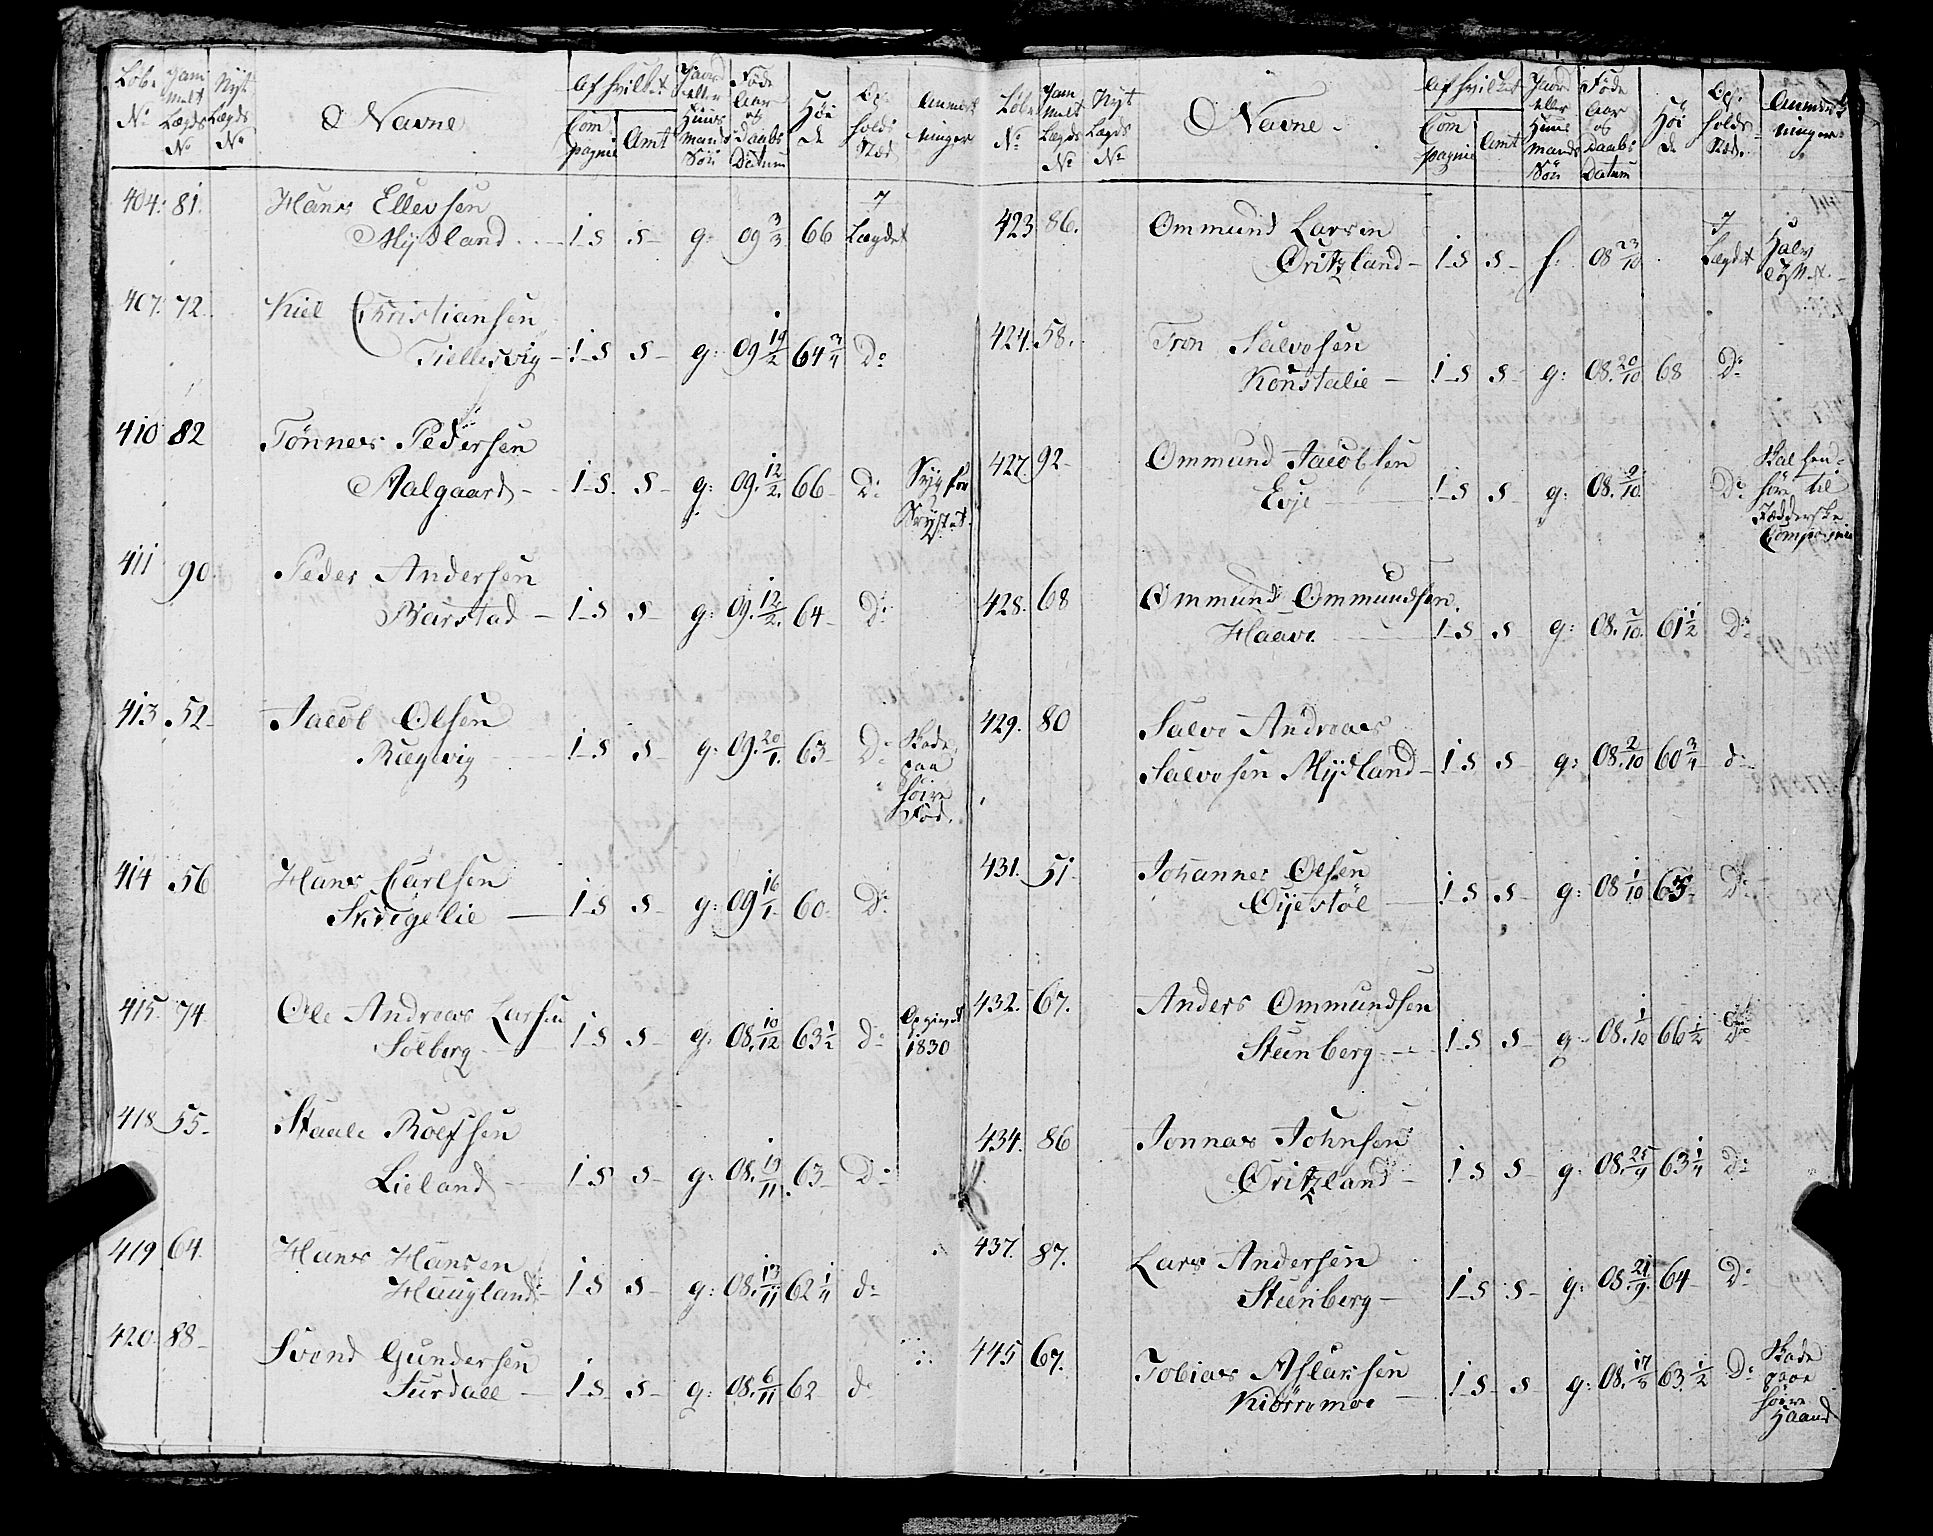 Løbe No Gammelt Lægds No Nyt Lægds No Navne Af hvilket Compagnie Amt Gaard eller Huusmands Søn Føde Aar og Daabs Datum Høide Opholds Sted Anmerkninger
404. 81. Hans Ellevsen
Mydland 1 S S g: 09 3/3 66 I Lægdet
407. 72. Kiel Christiansen
Tiellesvig 1 S S g: 09 14/2 64 3/4 Do
410 82 Tønnes Pedersen
Aalgaard 1 S. S g: 09. 12/2. 66 Do Syg for Brystet.
411 90. Peder Andersen
Barstad 1 S S g: 09. 12/2. 64 Do
413. 52 Jacob Olsen
Rægevig 1 S S g: 09. 20/1. 63 Do Skade paa høire Fod.
414 56 Hans Carlsen
Skrigelie 1 S S g: 09 16/1. 60. Do
415. 74 Ole Andreas Larsen
Solberg 1 S S g. 08. 10/12 63 1/2 do Opgivet 1830
418 55 Staale Roelfsen
Lieland 1 S S g: 08. 19/11. 63 Do
419. 64. Hans Hansen
Haugland 1 S S g: 08. 13/11 62 1/4 do
420. 88 Svend Gundersen
Surdall 1 S S g: 08. 6/11 62 do
Løbe No Gammelt Lægds No Nyt Lægds No Navne. Af hvilket Compagnie Amt Gaard eller Huusmands Søn Føde Aar og Daabs Datum Høide Opholds Sted. Anmerkninger
423. 86. Ommund Larsen
Oritzland 1 S S f. 08 23/10 I Lægdet Halv
424. 58. Tron Salvesen
Konstalie 1 S S g: 08. 20/10 68 Do
427. 92 Ommund Jacobsen
Evje 1 S S g: 08. 9/10. Do Skal henhøre til Jædderske Compagnie
428. 68 Ommund Ommundsen
Haave 1 S S g: 08. 7/10. 61 1/2 Do
429. 80 Salve Andreas
Salvesen Mydland 1 S S g: 08. 2/10 60 3/4 do
431. 51. Johannes Olsen
Øyestøl 1 S S g: 08 1/10 65 Do
432. 67. Anders Ommundsen
Steenberg 1 S S g 08. 1/10 66 1/2 Do
434. 86 Jonnas Johnsen
Oritzland 1 S S g: 08. 25/9 63 1/4 Do
437. 87. Lars Andersen
Steenberg 1 S S g: 08. 21/9. 64 Do
445 67. Tobias Aslacsen
Kiørremoe 1 S S g: 08. 17/8 63 1/2 Do Skade paa høire Haand